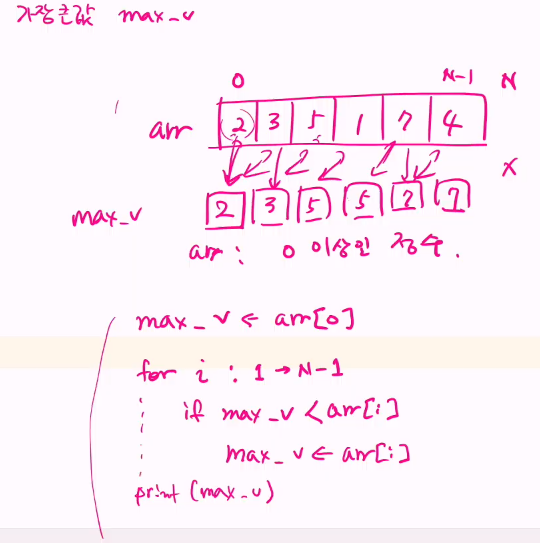 가장큰값 max_v
0 N-1 N
arr 2 3 5 1 7 4
X
max_v 2 3 5 5 7 7
arr : 0 이상인 정수.
max_v ← arr[0]
for i : 1 → N-1
if max_v < arr[i]
max_v ← arr[i]
print (max_v)